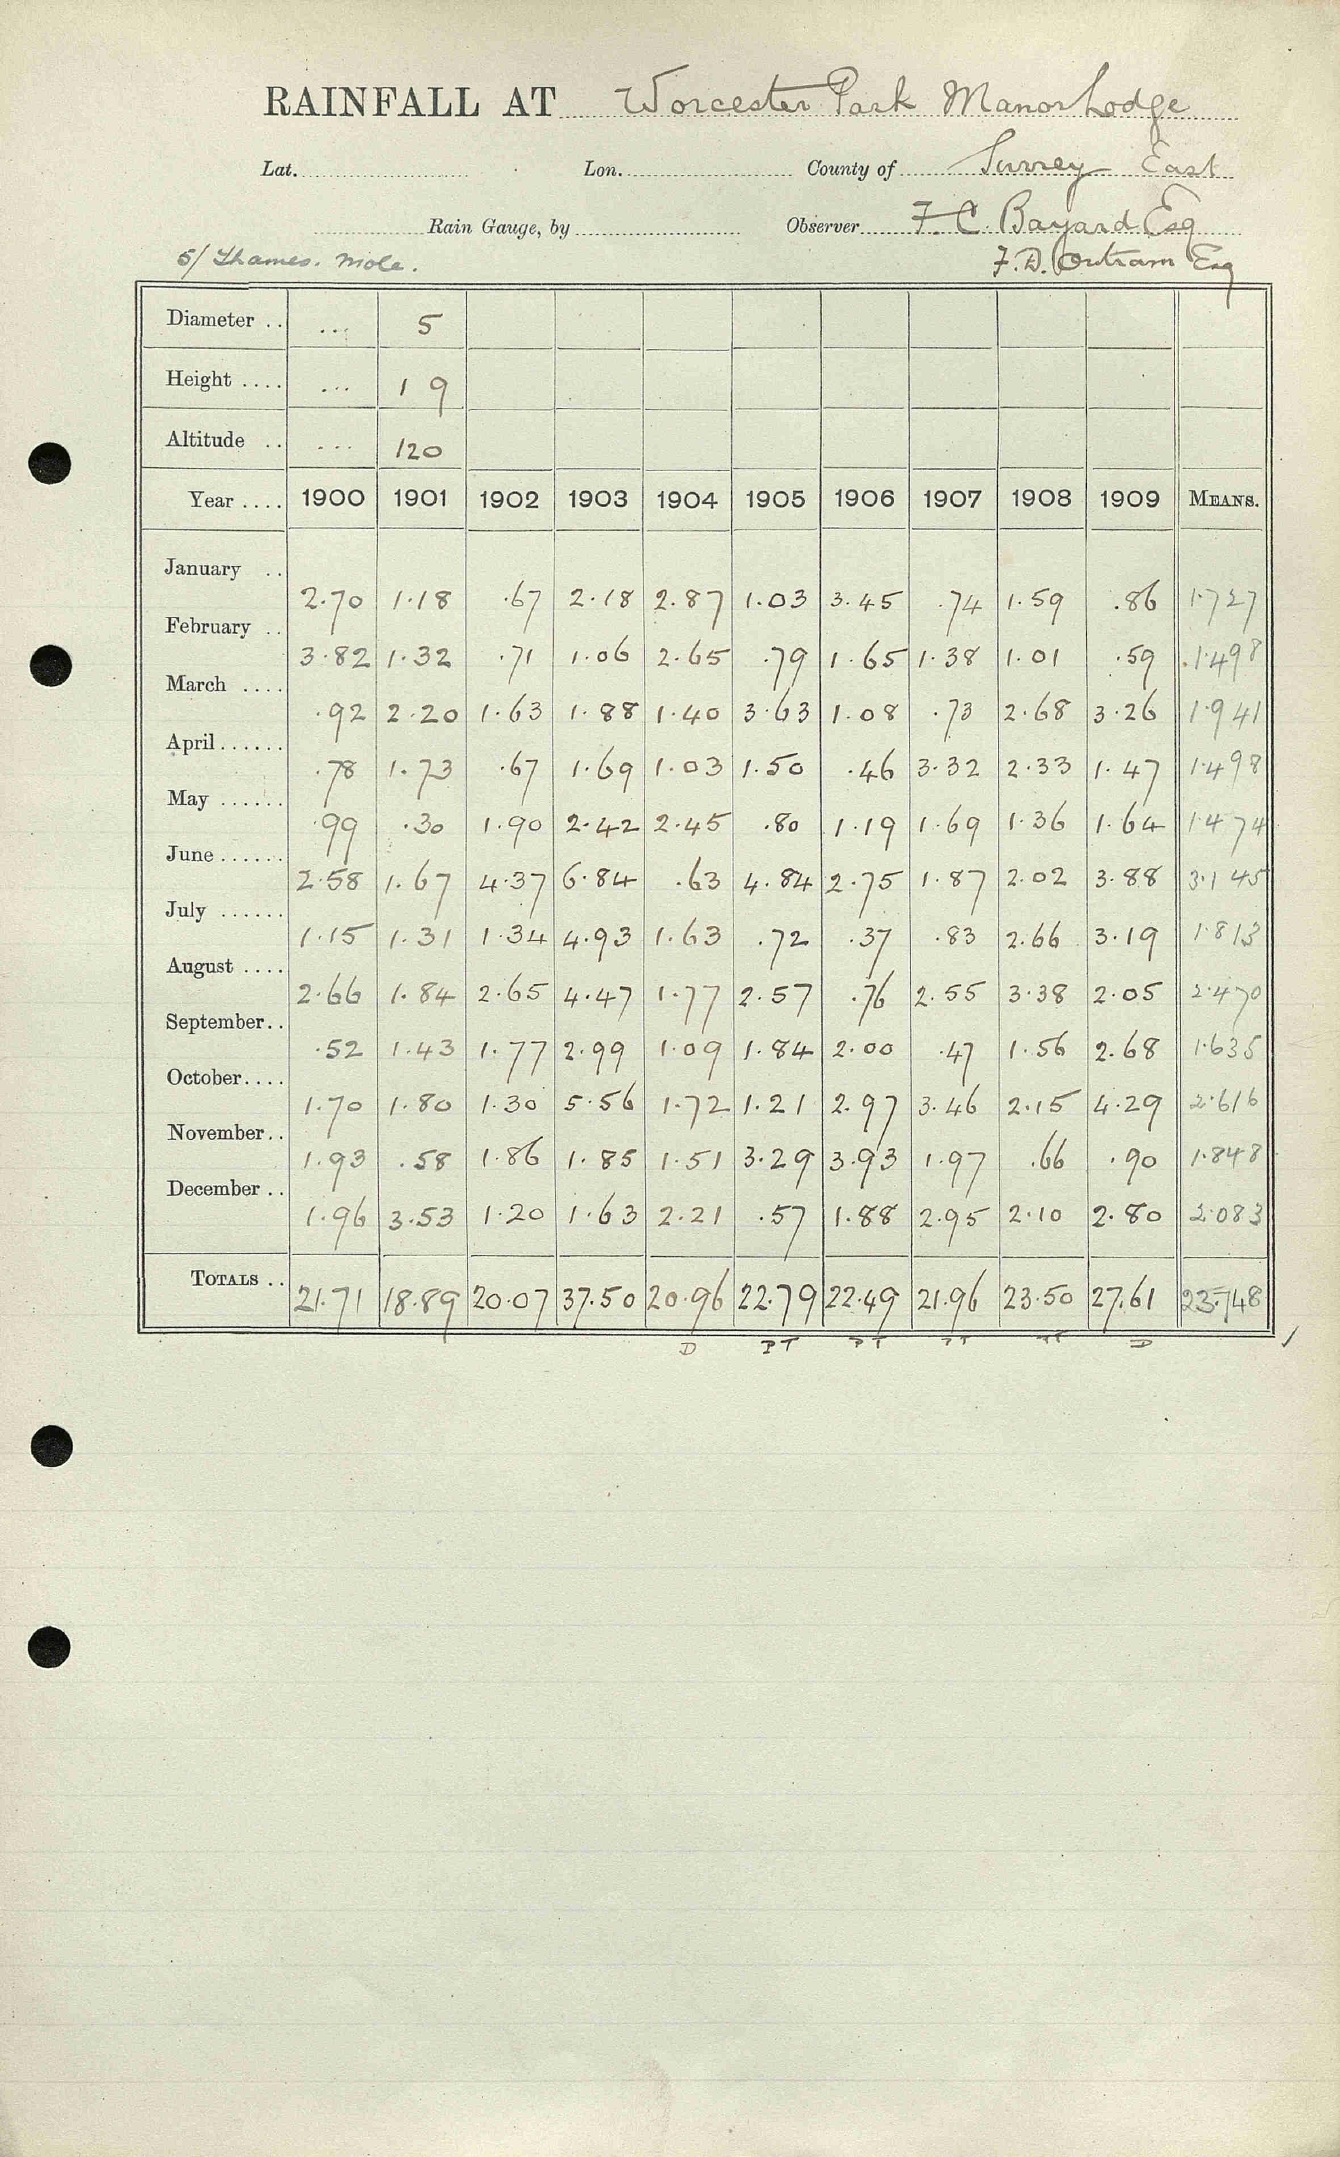 RAINFALL AT Worcester Park Manor Lodge
Lat. Lon. County of Surrey East
Rain Gauge, by Observer F. C. Bayard Esq
5/ Thames. Mole. F. D. Outram Esq
Diameter .. ... 5
Height .... ... 1 9
Altitude .. ... 120
Year .... 1900 1901 1902 1903 1904 1905 1906 1907 1908 1909 MEANS.
January .. 2.70 1.18 .67 2.18 2.87 1.03 3.45 .74 1.59 .86 1.727
February .. 3.82 1.32 .71 1.06 2.65 .79 1.65 1.38 1.01 .59 1.498
March .... .92 2.20 1.63 1.88 1.40 3.63 1.08 .73 2.68 3.26 1.941
April ...... .78 1.73 .67 1.69 1.03 1.50 .46 3.32 2.33 1.47 1.498
May ...... .99 .30 1.90 2.42 2.45 .80 1.19 1.69 1.36 1.64 1.474
June ...... 2.58 1.67 4.37 6.84 .63 4.84 2.75 1.87 2.02 3.88 3.145
July ...... 1.15 1.31 1.34 4.93 1.63 .72 .37 .83 2.66 3.19 1.813
August .... 2.66 1.84 2.65 4.47 1.77 2.57 .76 2.55 3.38 2.05 2.470
September.. .52 1.43 1.77 2.99 1.09 1.84 2.00 .47 1.56 2.68 1.635
October.... 1.70 1.80 1.30 5.56 1.72 1.21 2.97 3.46 2.15 4.29 2.616
November.. 1.93 .58 1.86 1.85 1.51 3.29 3.93 1.97 .66 .90 1.848
December .. 1.96 3.53 1.20 1.63 2.21 .57 1.88 2.95 2.10 2.80 2.083
TOTALS .. 21.71 18.89 20.07 37.50 20.96 22.79 22.49 21.96 23.50 27.61 23.748
D PT PT PT D